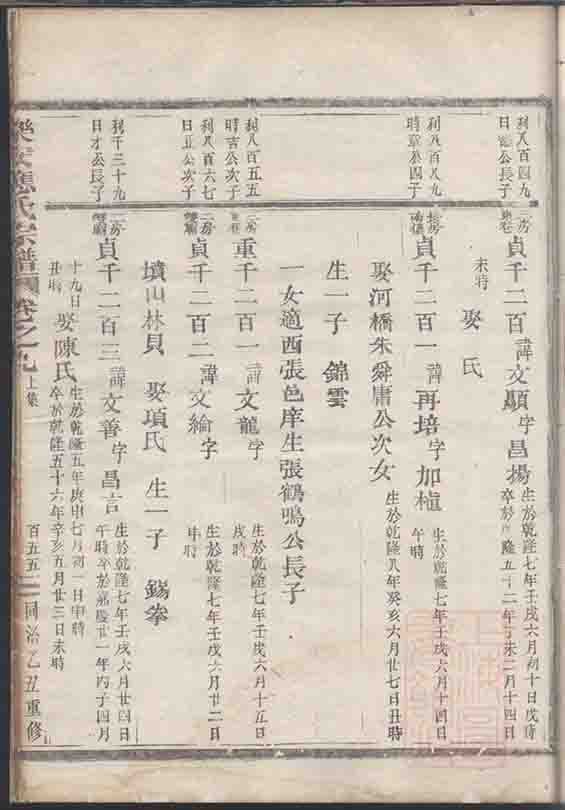 利八百四九
日德公長子
三房
貞千二百 諱文顯字昌揚
生於乾隆七年壬戌六月初十日戌時
卒於隆五十二年丁未二月十四日
未時
娶 氏
利八百八九
時章公四子
貞千二百一 諱再培字加植
生於乾隆七年壬戌六月十四日
午時
娶河橋朱舜庸公次女
生於乾隆八年癸亥六月廿七日丑時
生一子 錦雲
一女適西張邑庠生張鶴鳴公長子
利八百五五
時吉公次子
二房
重千二百一 諱文龍字
生於乾隆七年壬戌六月十五日
戌時
利八百六七
日正公次子
二房
貞千二百二 諱文綸字
生於乾隆七年壬戌六月廿二日
申時
墳山林貝 娶項氏 生一子 錫拳
利千三十九
日才公長子
二房
貞千二百三 諱文善字昌言
生於乾隆七年壬戌六月廿四日
午時卒於嘉慶廿一年丙子四月
十九日
丑時
娶陳氏
生於乾隆五年庚申七月初一日申時
卒於乾隆五十六年辛亥五月廿三日未時
應氏宗譜 卷之九 上集 百五五 同治乙丑重修